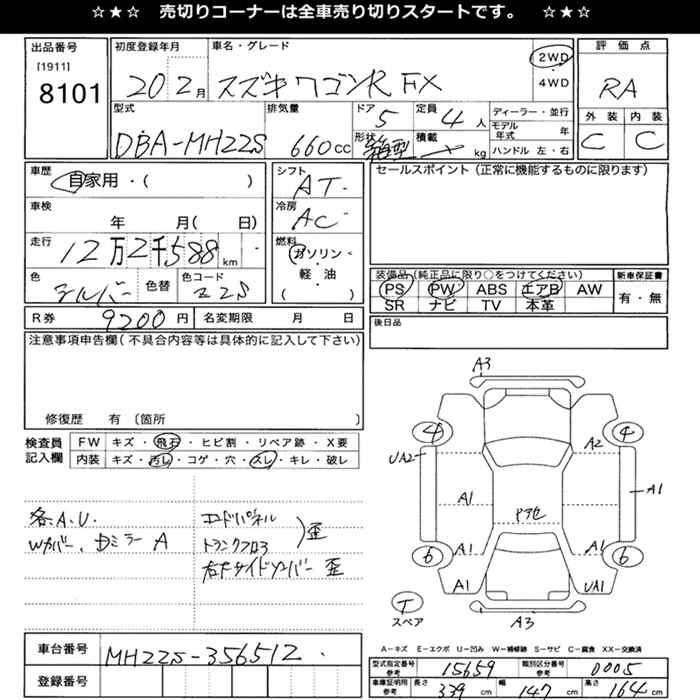 ☆★☆ 売切りコーナーは全車売り切りスタートです。 ☆★☆
出品番号
[1911]
8101
初度登録年月
20 2月
車名・グレード
スズキ ワゴンR FX
2WD
・
4WD
評価点
RA
外装 内装
C C
型式
DBA-MH22S
排気量
660cc
ドア
5
定員
4人
形状
箱型
積載
kg
ディーラー・並行
モデル年式 年
ハンドル 左・右
車歴
自家用・( )
車検
年 月( 日)
走行
12万2千588km
色
シルバー
色替
色コード
Z2S
シフト
AT
冷房
AC
燃料
ガソリン・
軽・油
( )
セールスポイント(正常に機能するものに限ります)
装備品(純正品に限り○をつけてください)
PS PW ABS エアB AW
SR ナビ TV 本革
新車保証書
有・無
R券 9200円
名変期限 月 日
後日品
注意事項申告欄(不具合内容等は具体的に記入して下さい)
修復歴 有〔箇所 〕
検査員
記入欄
FW キズ・飛石・ヒビ割・リペア跡・X要
内装 キズ・汚レ・コゲ・穴・スレ・キレ・破レ
各A.U.
Wカバー、
ミラー A
エンドパネル
トランクフロア
歪
サイド
歪
A3
4
4
UA2
A2
A1
A1
ヤケ
6
6
A1
A1
A1
UA1
T
スペア
A3
A-キズ E-エクボ U-凹み W-補修跡 S-サビ C-腐食 XX-交換済
車台番号
MH22S-356512
登録番号
型式指定番号
参考
15659
類別区分番号
参考
0005
車庫証明用
参考
長さ
339cm
幅
147cm
高さ
164cm